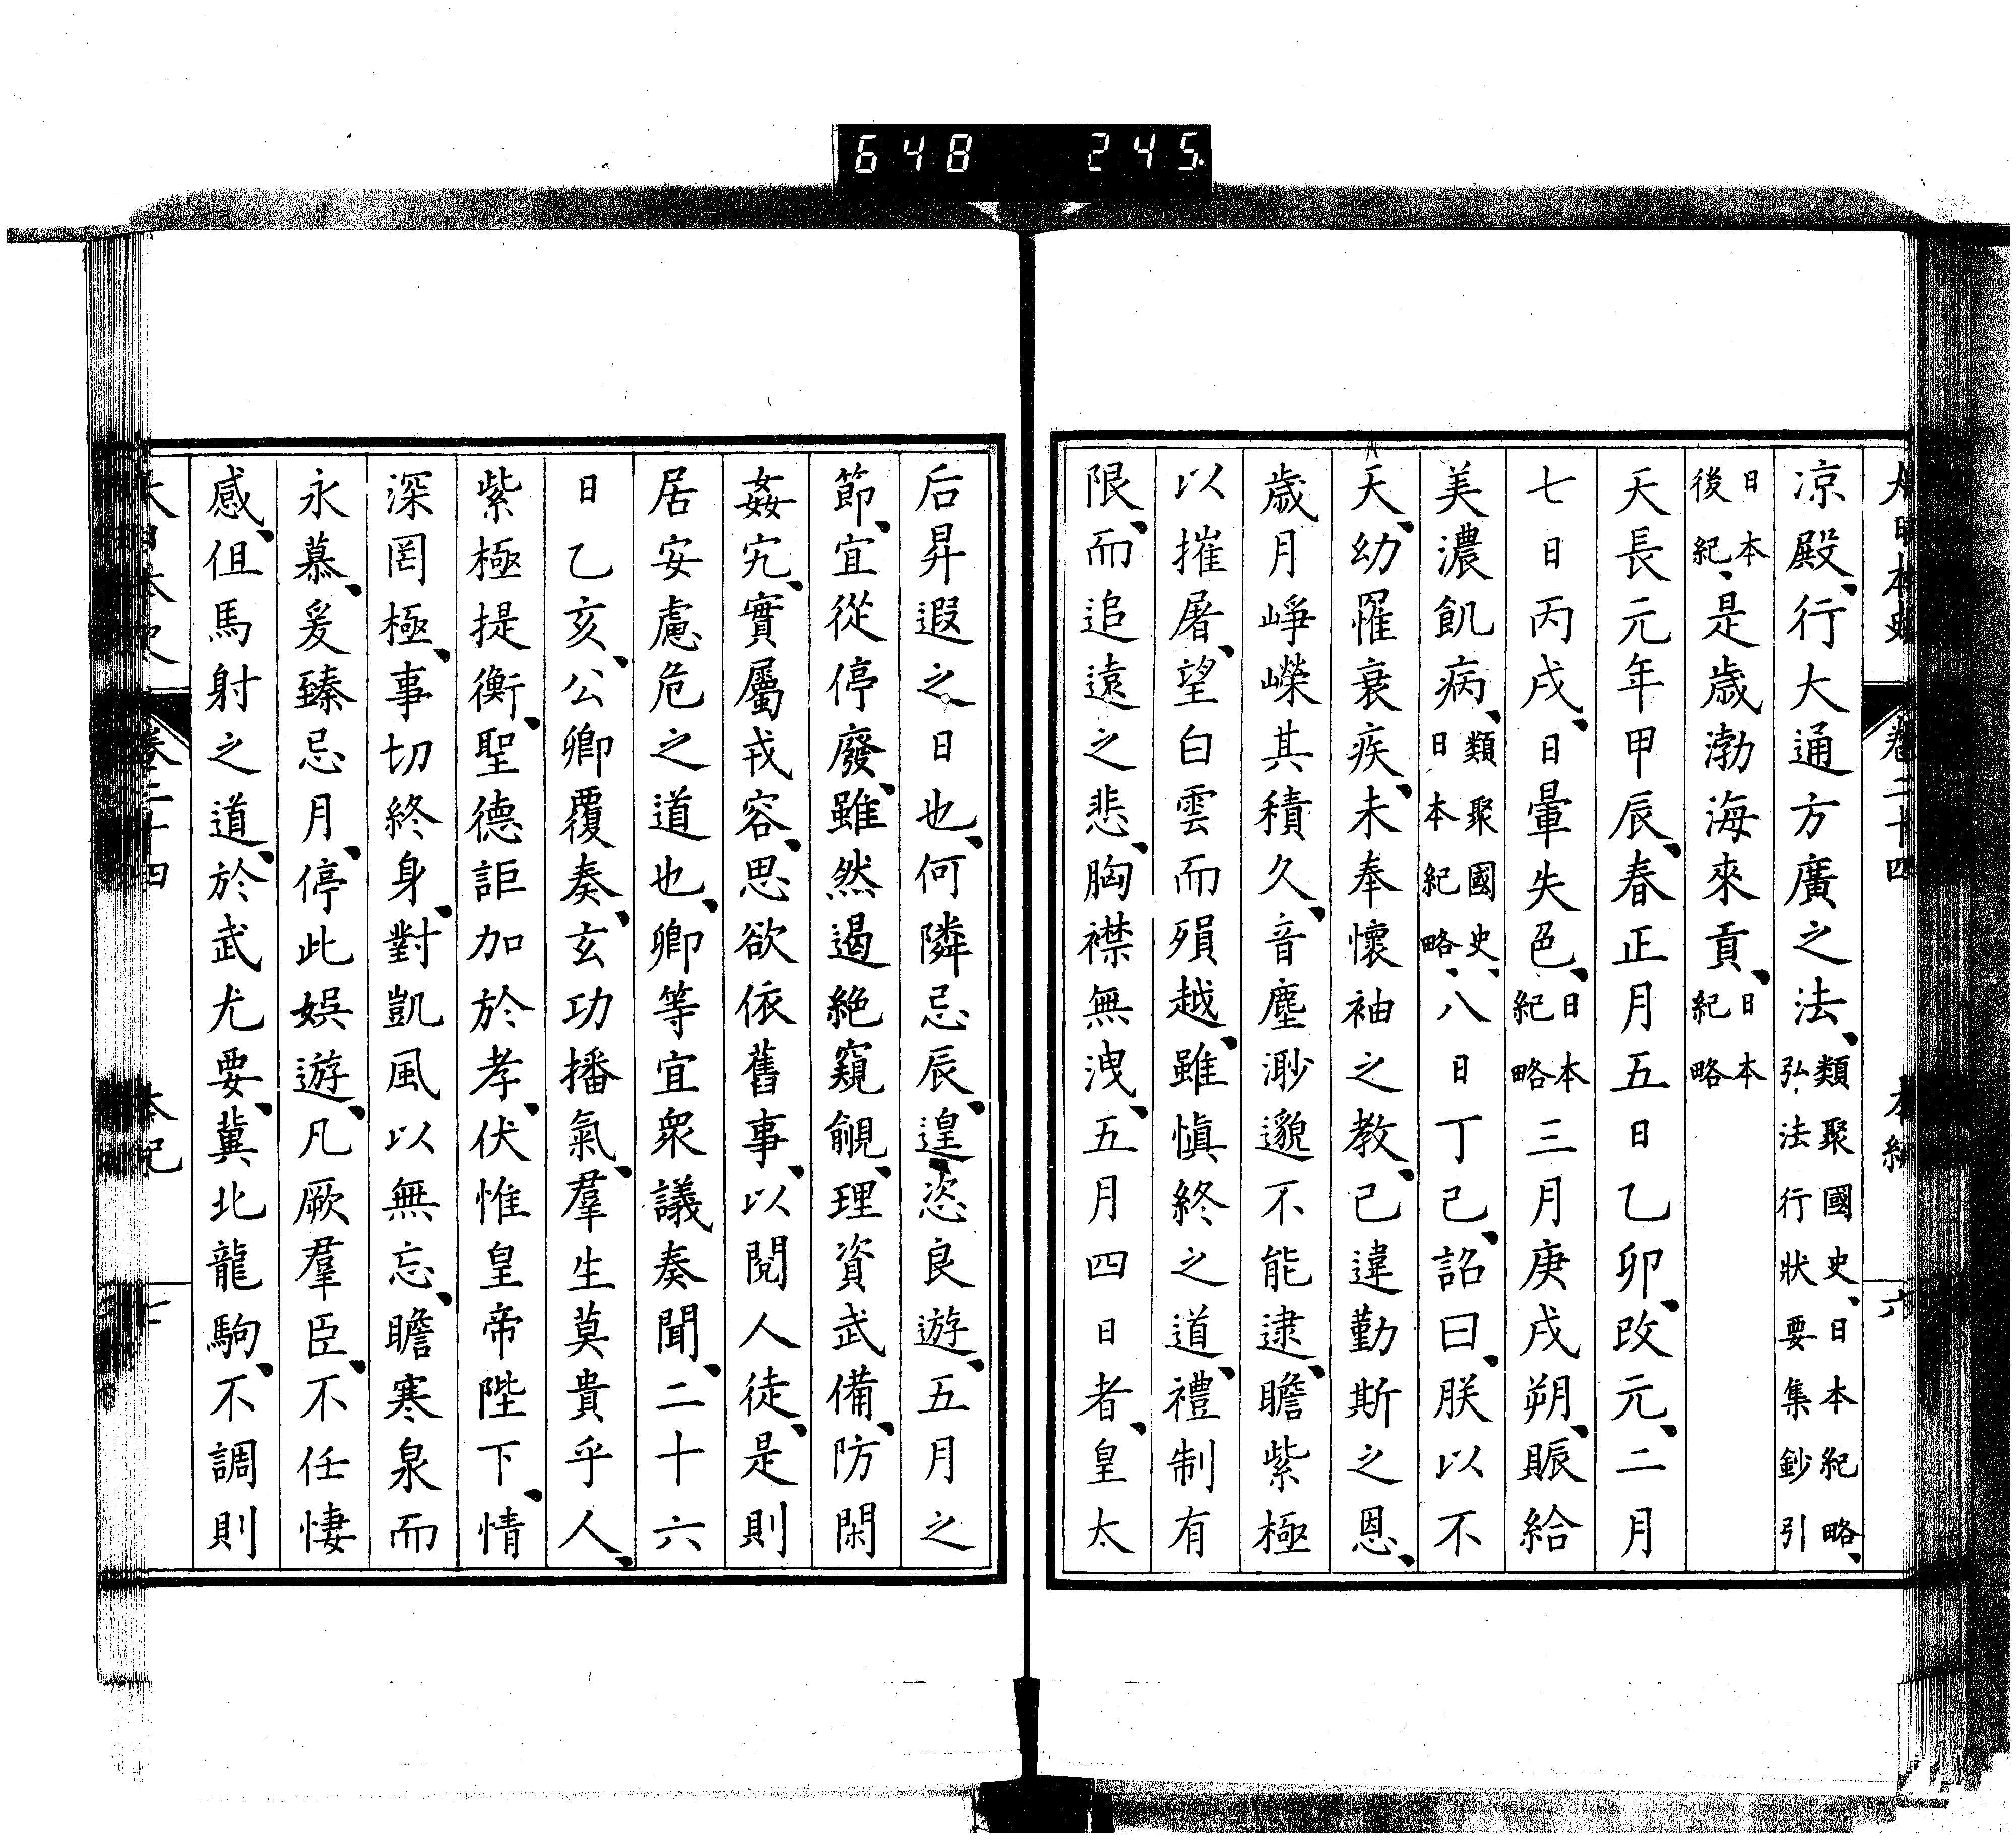 648 245.
大日本史 卷二十四 本紀 六
凉殿、行大通方廣之法、類聚國史、日本紀略、弘法行狀要集鈔引
日本後紀、是歲渤海來貢、日本紀略
天長元年甲辰、春正月五日乙卯、改元、二月
七日丙戌、日暈失色、日本紀略三月庚戌朔、賑給
美濃飢病、類聚國史、日本紀略、八日丁已、詔曰、朕以不
天、幼罹衰疾、未奉懷袖之教、已違勤斯之恩、
歲月崢嶸其積久、音塵渺邈不能逮、瞻紫極
以摧屠、望白雲而殞越、雖愼終之道、禮制有
限、而追遠之悲、胸襟無洩、五月四日者、皇太
后昇遐之日也、何隣忌辰、遑恣良遊、五月之
節、宜從停廢、雖然遏絕窺覦、理資武備、防閑
姦宄、實屬戎容、思欲依舊事、以閱人徒、是則
居安慮危之道也、卿等宜衆議奏聞、二十六
日乙亥、公卿覆奏、玄功播氣、羣生莫貴乎人、
紫極提衡、聖德詎加於孝、伏惟皇帝陛下、情
深罔極、事切終身、對凱風以無忘、瞻寒泉而
永慕、爰臻忌月、停此娛遊、凡厥羣臣、不任悽
感、但馬射之道、於武尤要、冀北龍駒、不調則
大日本史 卷二十四 本紀 七